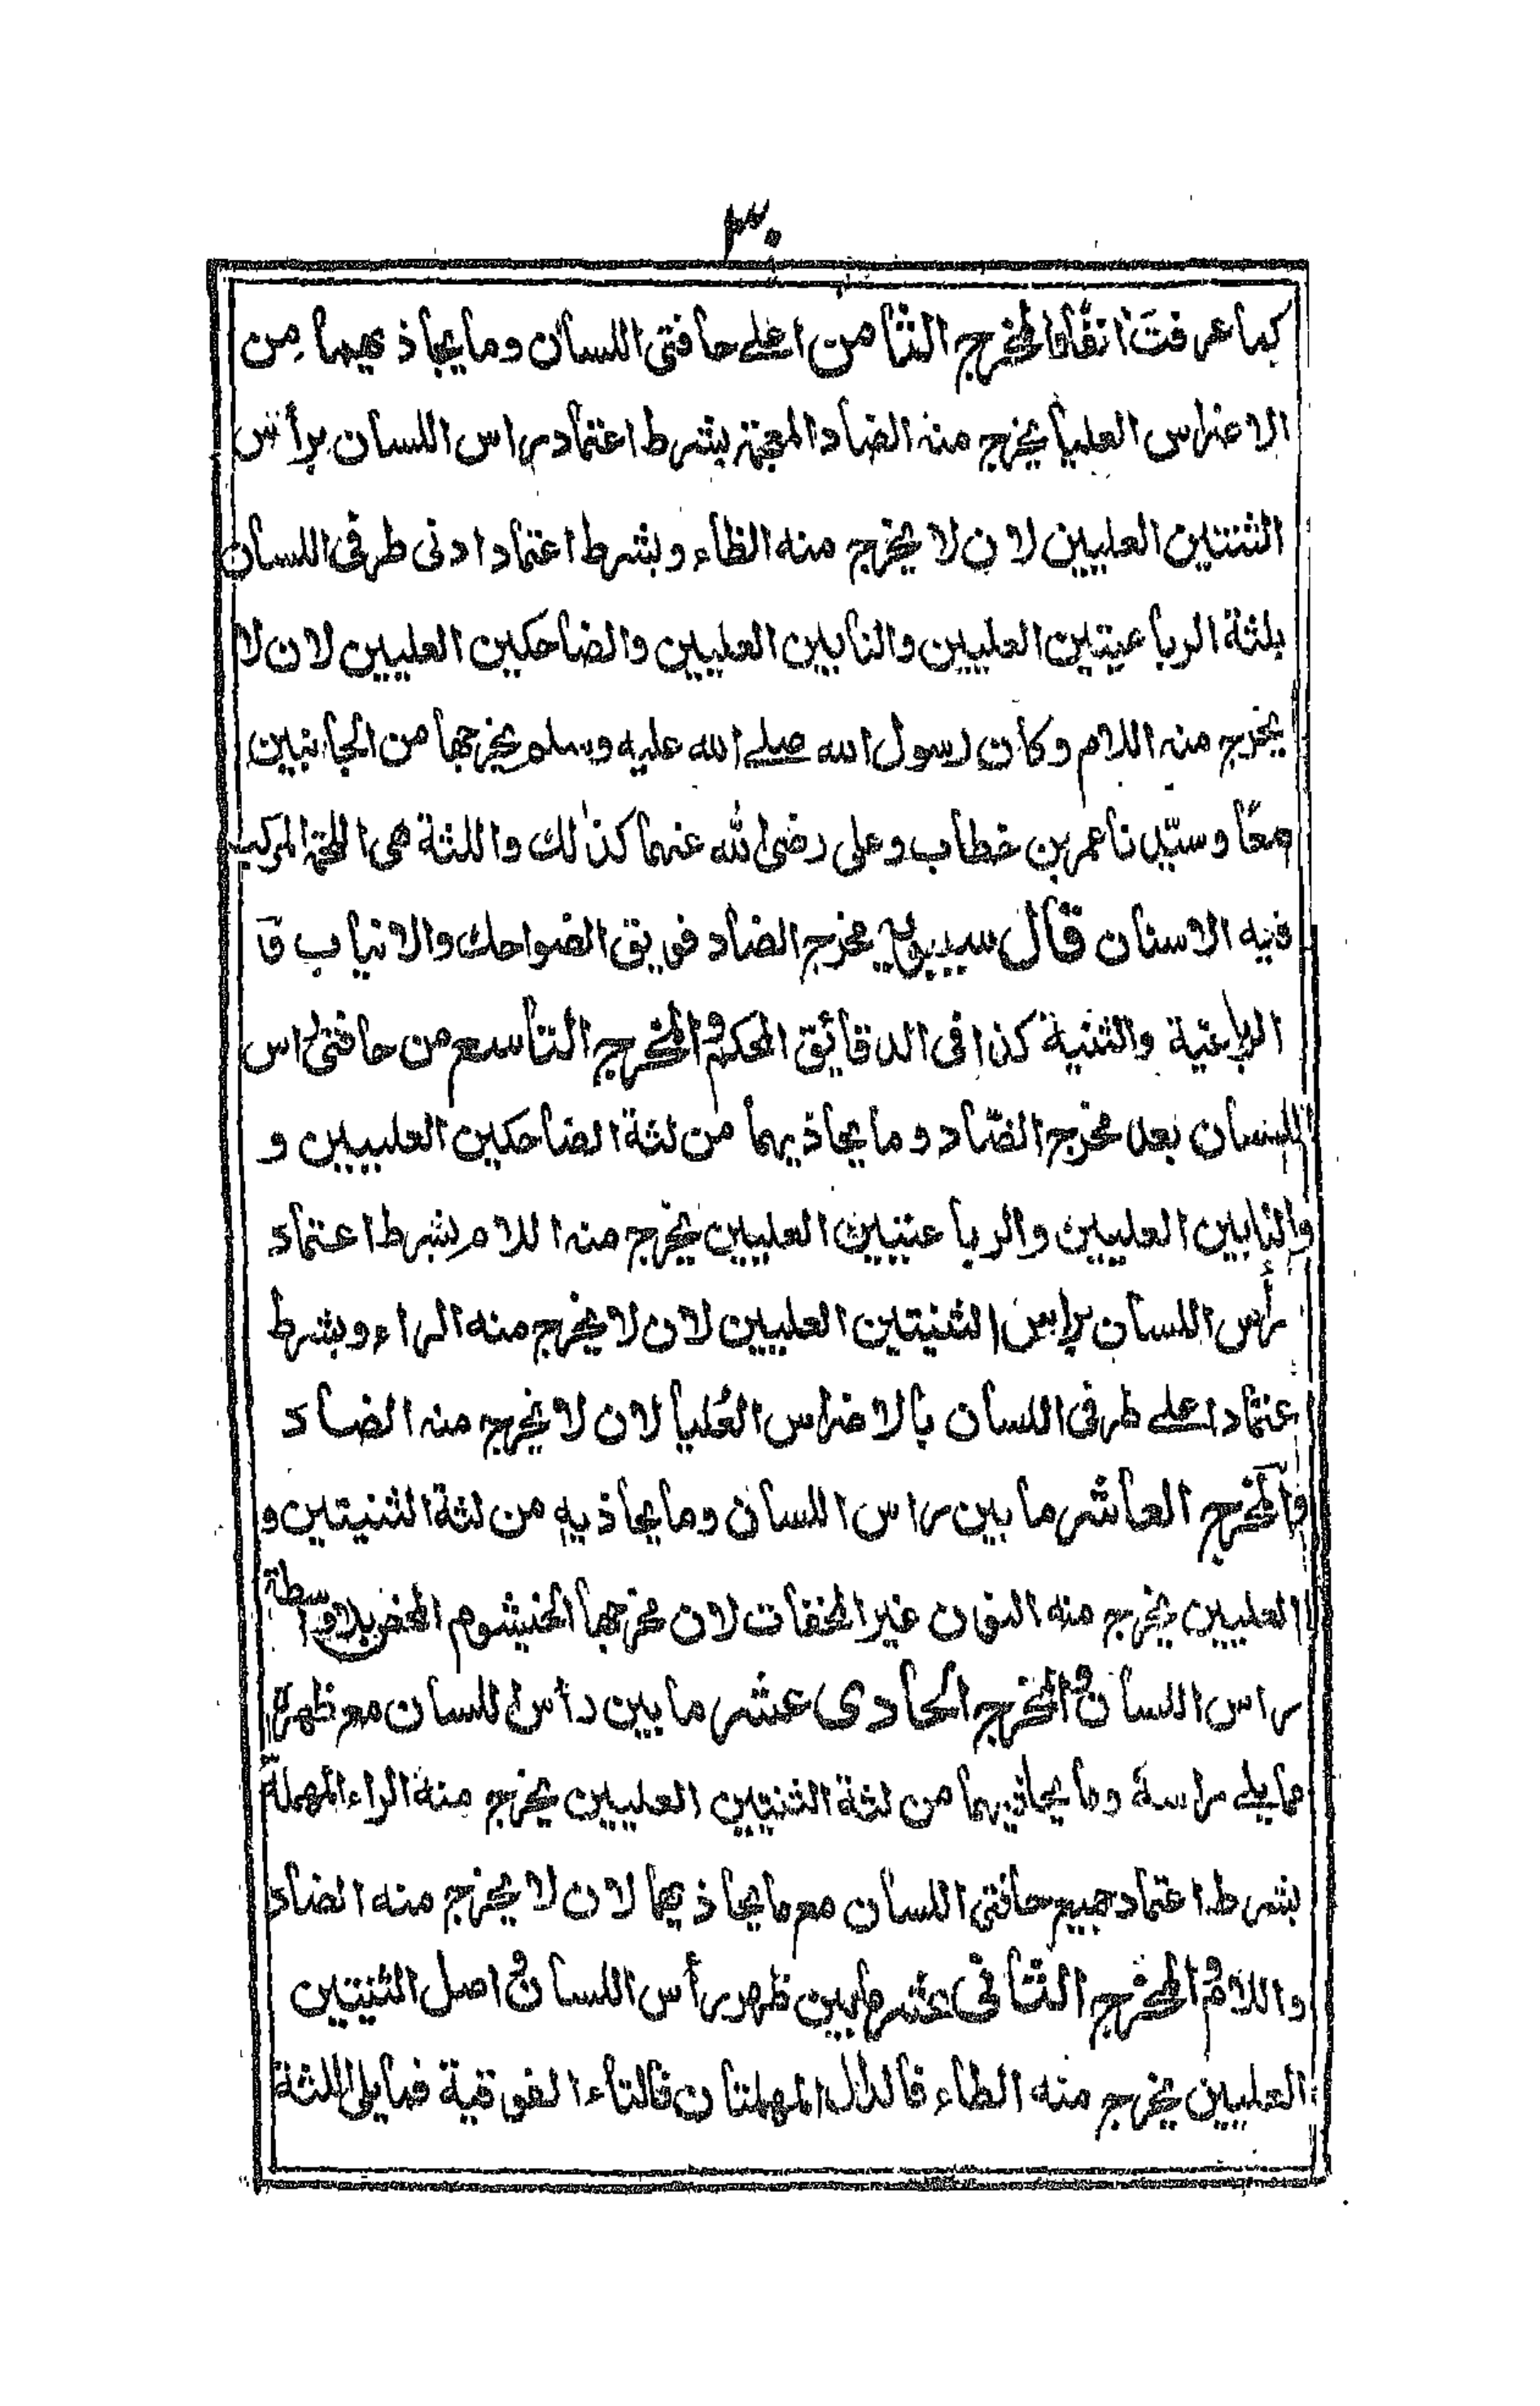 ٣٠
كما عرفت انفًا والمخرج الثامن اعلے حافتی اللسان وما يحاذيهما مِن
الاضراس العليا يخرج منه الضاد المعجمة بشرط اعتماد راس اللسان برأس
الثنتين العليين لان لا يخرج منه الظاء وبشرط اعتماد ادنی طرفی اللسان
بلثة الرباعيتين العليين والنابين العليين والضاحكين العليين لان لا
يخرج منه اللام وكان رسول الله صلے الله عليه وسلم يخرجها من الجانبين
معًا وسيّدنا عمر بن خطاب وعلی رضی الله عنهما كذالك واللثة هی اللحمة المركب
فيه الاسنان قال سيبويه مخرج الضاد فويق الضواحك والانياب
الرباعية والثنية كذا فی الدقائق المحكمة والمخرج التاسع من حافتی راس
اللسان بعد مخرج الضّاد وما يحاذيهما من لثة الضاحكين العليين و
والنابين العليين والرباعيتين العليين يخرج منه اللام بشرط اعتماد
رأس اللسان براس الثنيتين العليين لان لا يخرج منه الراء وبشرط
اعتماد اعلے طرفی اللسان بالاضراس العُليا لان لا يخرج منه الضاد
والمخرج العاشر ما بين راس اللسان وما يحاذيه من لثة الثنيتين و
العليين يخرج منه النون غير المخفات لان مخرجها الخيشوم المحض بلا واسطة
راس اللسان والمخرج الحادی عشر ما بين رأس اللسان مع ظهره
مما يلے راسه وما يحاذيهما من لثة الثنيتين العليين يخرج منه الراء المهملة
بشرط اعتماد جميع حافتی اللسان مع ما يحاذيهما لان لا يخرج منه الضاد
واللام والمخرج الثانی عشر ما بين ظهر رأس اللسان واصل الثنيتين
العليين يخرج منه الطاء فالدال المهملتان فالتاء الفوقية فما يلی اللثة